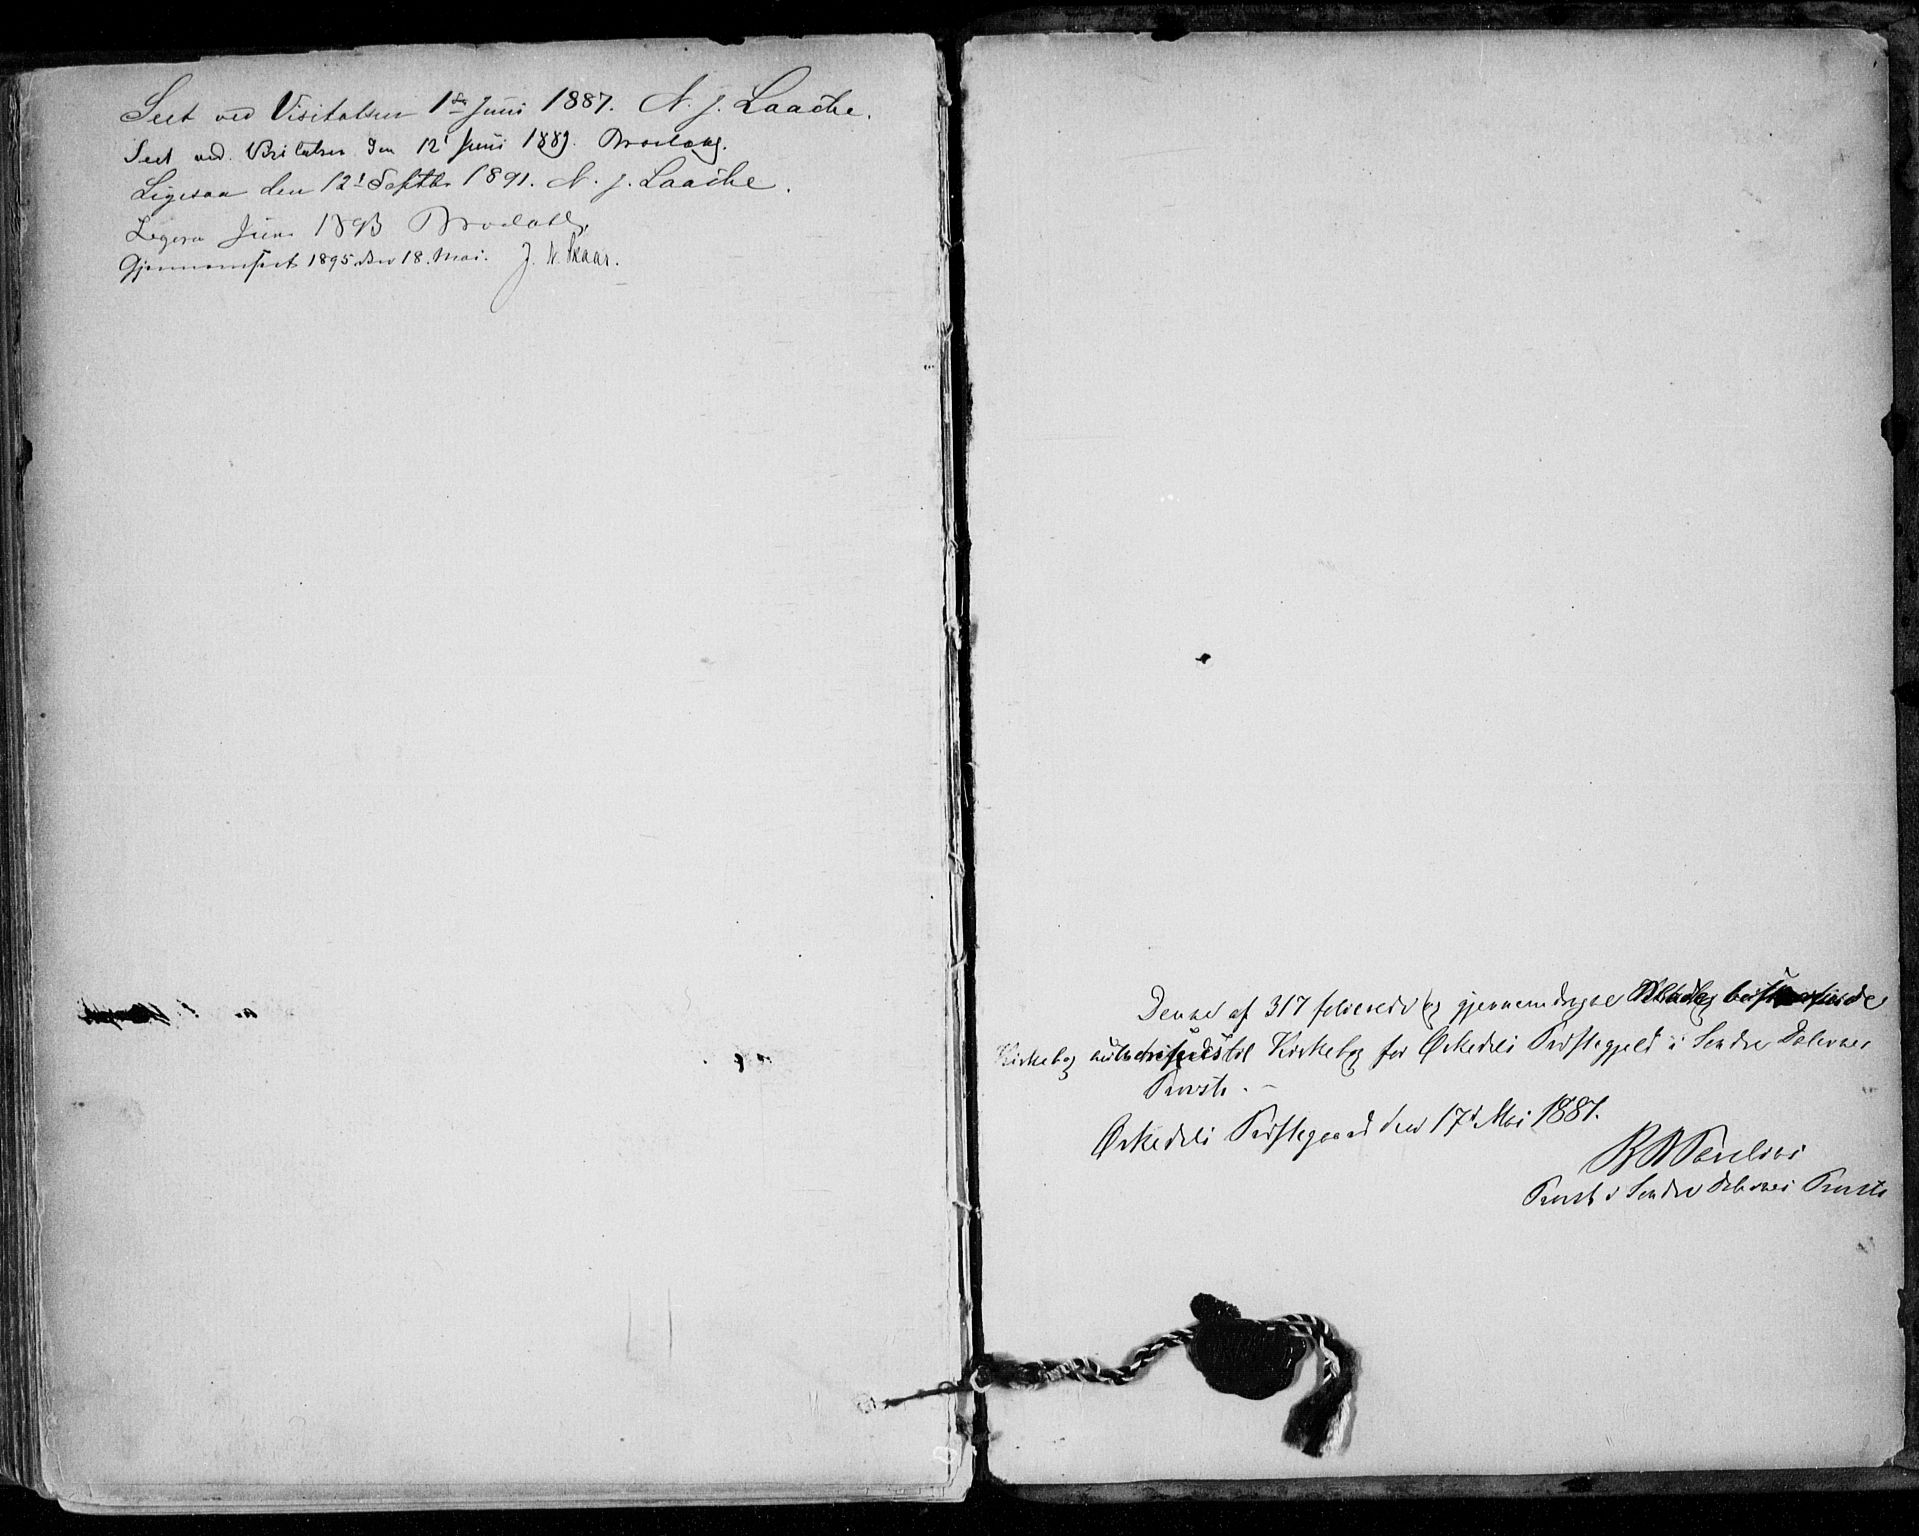 Seet ved Visitatsen 1ste Juni 1887. N. J. Laache.
Seet ved Visitatsen den 12' Juni 1889.
Ligesaa den 12' Septbr 1891. N. J. Laache.
Ligesaa Juni 1893
Gjennemseet 1895 den 18. Mai. J. N. Skaar.
Denne af 317 folierede og gjennemdragne Blade bestaaende
Kirkebog authoriseres til Kirkebog for Ørkedals Præstegjeld i Søndre Dalernes
Provsti. -
Ørkedals Præstegaard den 17' Mai 1887.
Provst i Søndre Dalernes Provsti